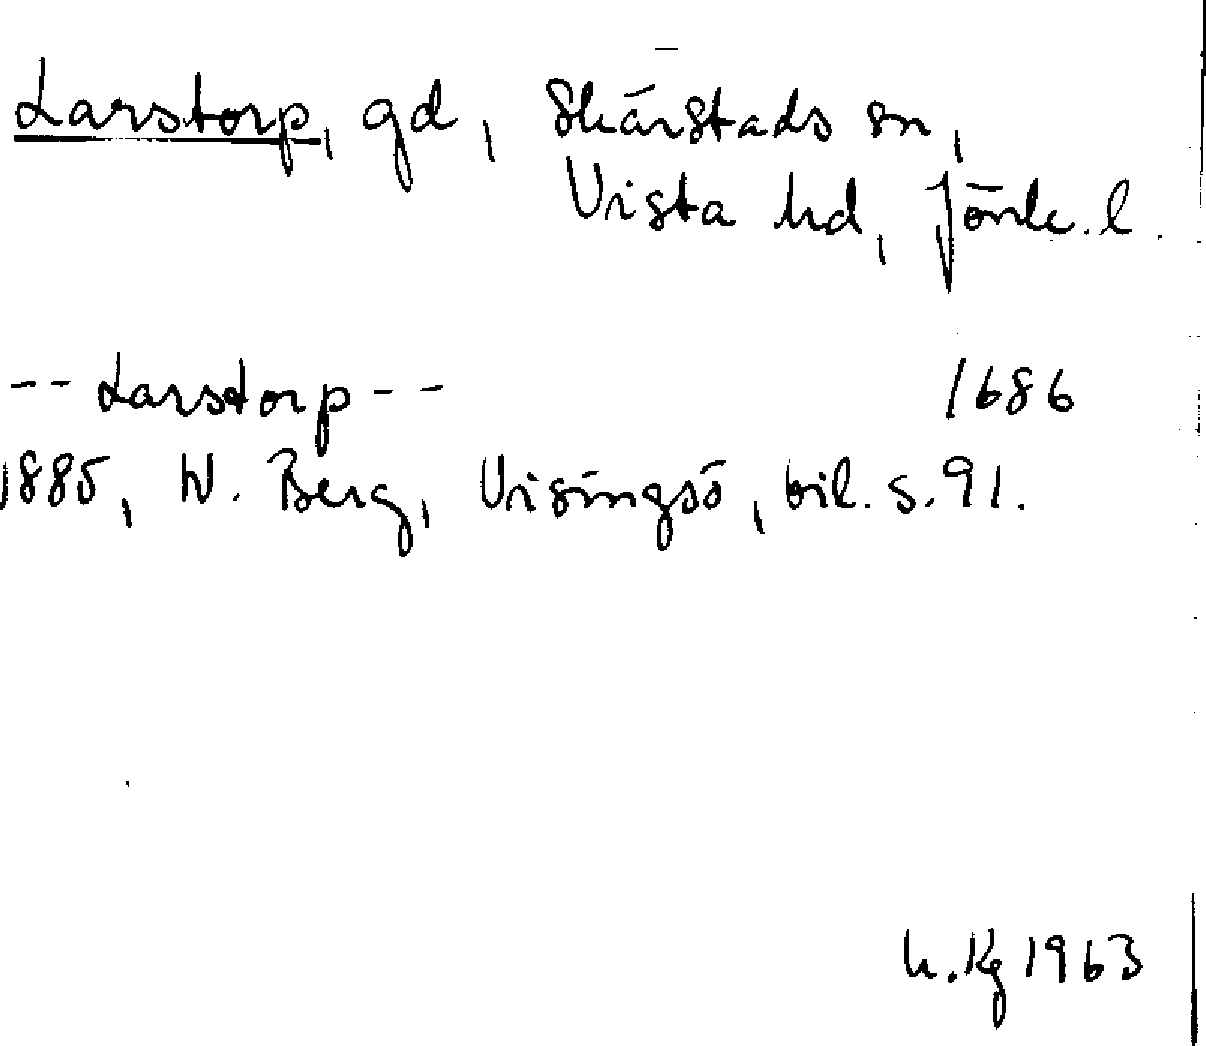 Larstorp, gd, Skärstads sn,
Vista hd, Jönk. l.
-- Larstorp -- 1686
1885, W. Berg, Visingsö, bil. s. 91.
h. Kg 1963